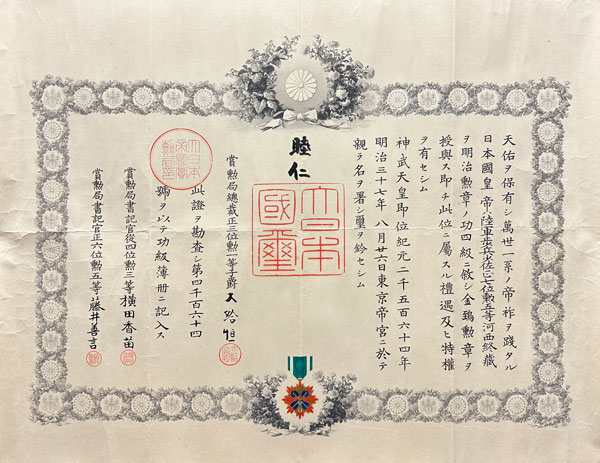 天佑ヲ保有シ萬世一系ノ帝祚ヲ踐タル
日本國皇帝陸軍歩兵少佐正七位勲五等河西終藏
ヲ明治勲章ノ功四級ニ敘シ金鵄勲章ヲ
授與ス即チ此位ニ屬スル禮遇及ヒ特權
ヲ有セシム
神武天皇即位紀元二千五百六十四年
明治三十七年八月廿六日東京帝宮ニ於テ
親ラ名ヲ署シ璽ヲ鈐セシム
睦仁
大日本
國璽
賞勲局總裁正三位勲一等子爵大給恒
此證ヲ勘査シ第四千百六十四
號ヲ以テ功級簿冊ニ記入ス
賞勲局書記官從四位勲三等横田香苗
賞勲局書記官正六位勲五等藤井善言